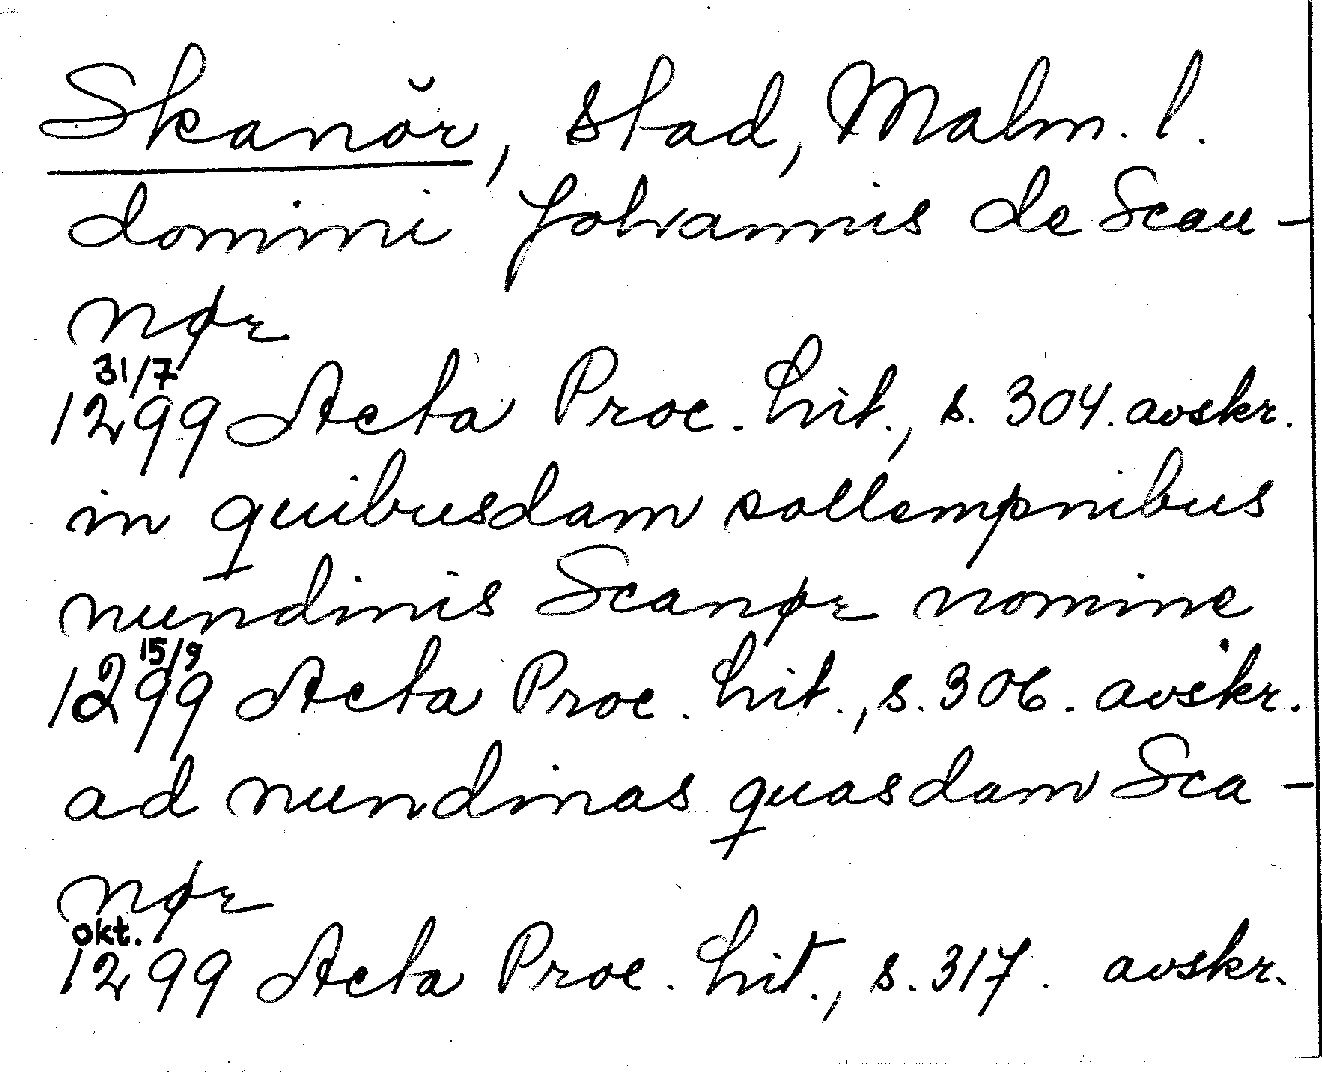 Skanör, stad, Malm. l.
domini Johannis de Scau-
nør
31/7
1299 Acta Proc. Lit., s. 304. avskr.
in quibusdam sollempnibus
nundinis Scanør nomine
15/9
1299 Acta Proc. Lit., s. 306. avskr.
ad nundinas quasdam Sca-
nør
okt.
1299 Acta Proc. Lit., s. 317. avskr.